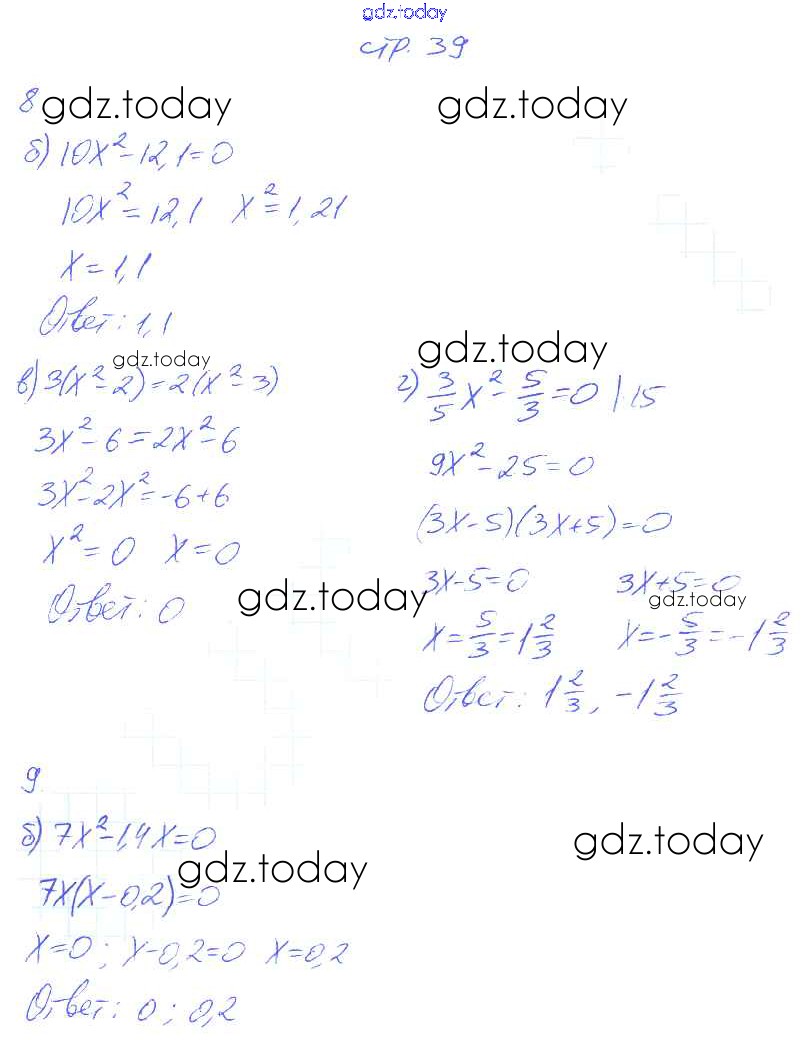 gdz.today
стр. 39
8 gdz.today gdz.today
б) 10x² - 12,1 = 0
10x² = 12,1 x² = 1,21
x = 1,1
Ответ: 1,1
gdz.today
в) 3(x² - 2) = 2(x² - 3)
3x² - 6 = 2x² - 6
3x² - 2x² = -6 + 6
x² = 0 x = 0
Ответ: 0
gdz.today
gdz.today
г) 3/5 x² - 5/3 = 0 | 15
9x² - 25 = 0
(3x - 5)(3x + 5) = 0
3x - 5 = 0 3x + 5 = 0
gdz.today
x = 5/3 = 1 2/3 x = -5/3 = -1 2/3
Ответ: 1 2/3, -1 2/3
9.
б) 7x² - 1,4x = 0
gdz.today gdz.today
7x(x - 0,2) = 0
x = 0; x - 0,2 = 0 x = 0,2
Ответ: 0; 0,2